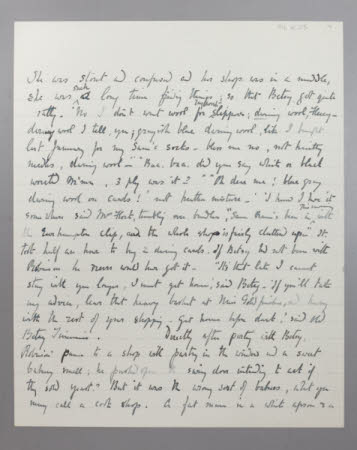 She was stout and confused and her shop was in a muddle,
She was such a long time finding things; so that Betsy got quite
salty. "No I don't want wool for slippers; darning wool,
darning wool I tell you; grayish blue darning wool, like I bought
last January for my Sam's socks - bless me no, not knitting
needles, darning wool -" "Baa, baa, did you say white or black
worsted M'am, 3 ply was it?" "Oh dear me! blue gray
darning wool on cards! not heather mixture." "I know I have it
somewhere said Mr Fleck, tumbling over bundles, "Sam Ram's been in with
the clip, and the whole shop is fairly cluttered up." It
took half an hour to buy darning cards. If Betsy had not been with
Robinson he never would have got it. - "It's that late I cannot
stay with you longer, I must get home, said Betsy. - If you'll take
my advice, leave that heavy basket at and hurry
with the rest of your shopping. Get home before dark," said
Betsy Timmins. Directly after parting with Betsy,
Robinson came to a shop with pastry in the window and a sweet
bakery smell; he pushed open the swing door intending to ask if
they sold yeast? But it was the wrong sort of bakers, what you
may call a cook shop. A fat man in a white apron